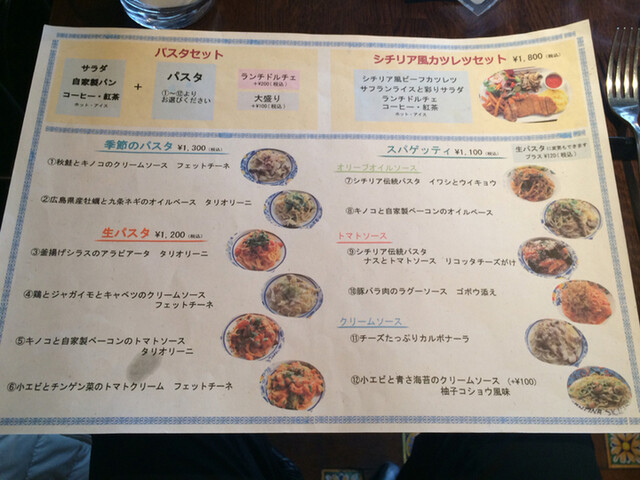 パスタセット
サラダ
自家製パン
コーヒー・紅茶
ホット・アイス
+
パスタ
①～⑫より
お選びください
ランチドルチェ
+¥200(税込)
大盛り
+¥100(税込)
シチリア風カツレツセット ¥1,800(税込)
シチリア風ビーフカツレツ
サフランライスと彩りサラダ
ランチドルチェ
コーヒー・紅茶
ホット・アイス
季節のパスタ ¥1,300(税込)
①秋鮭とキノコのクリームソース フェットチーネ
②広島県産牡蠣と九条ネギのオイルベース タリオリーニ
生パスタ ¥1,200(税込)
③釜揚げシラスのアラビアータ タリオリーニ
④鶏とジャガイモとキャベツのクリームソース
フェットチーネ
⑤キノコと自家製ベーコンのトマトソース
タリオリーニ
⑥小エビとチンゲン菜のトマトクリーム フェットチーネ
スパゲッティ ¥1,100(税込)
生パスタに変更もできます
プラス¥120(税込)
オリーブオイルソース
⑦シチリア伝統パスタ イワシとウイキョウ
⑧キノコと自家製ベーコンのオイルベース
トマトソース
⑨シチリア伝統パスタ
ナスとトマトソース リコッタチーズがけ
⑩豚バラ肉のラグーソース ゴボウ添え
クリームソース
⑪チーズたっぷりカルボナーラ
⑫小エビと青さ海苔のクリームソース (+¥100)
柚子コショウ風味